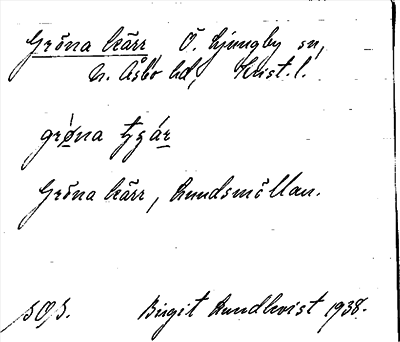 Gröna kärr, Ö. Ljungby sn,
N. Åsbo hd, Krist.l.
Gröna kärr, Rundsmöllan.
Birgit Rundkvist 1938.